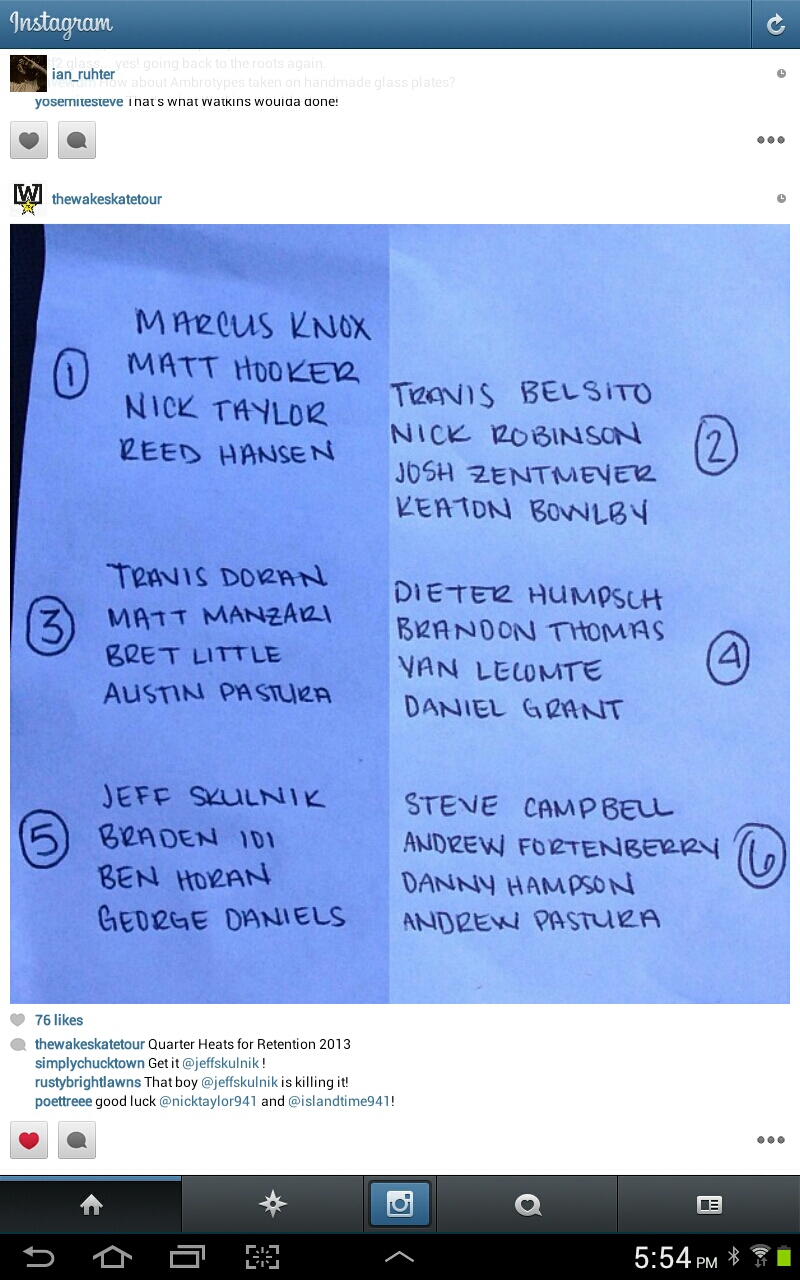 Instagram
glass... yes! going back to the roots again.
ian_ruhter
How about Ambrotypes taken on handmade glass plates?
yosemitesteve That's what Watkins woulda done!
W
thewakeskatetour
1
MARCUS KNOX
MATT HOOKER
NICK TAYLOR
REED HANSEN
2
TRAVIS BELSITO
NICK ROBINSON
JOSH ZENTMEYER
KEATON BOWLBY
3
TRAVIS DORAN
MATT MANZARI
BRET LITTLE
AUSTIN PASTURA
4
DIETER HUMPSCH
BRANDON THOMAS
YAN LECOMTE
DANIEL GRANT
5
JEFF SKULNIK
BRADEN IDI
BEN HORAN
GEORGE DANIELS
6
STEVE CAMPBELL
ANDREW FORTENBERRY
DANNY HAMPSON
ANDREW PASTURA
76 likes
thewakeskatetour Quarter Heats for Retention 2013
simplychucktown Get it @jeffskulnik !
rustybrightlawns That boy @jeffskulnik is killing it!
poettreee good luck @nicktaylor941 and @islandtime941!
5:54 PM